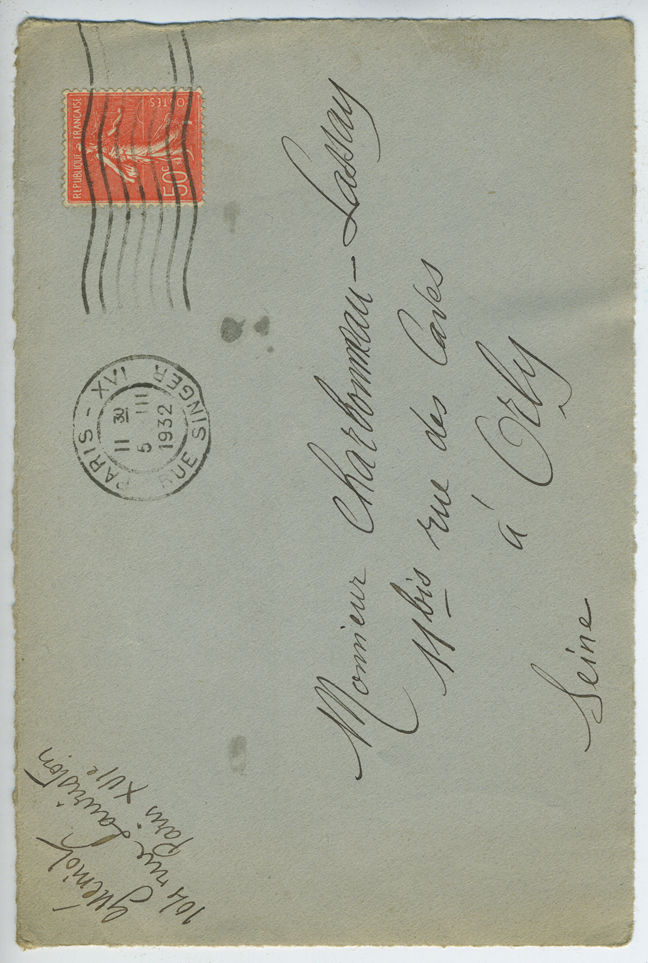 Guéniot
104 rue Lauriston
Paris XVIe
REPUBLIQUE FRANÇAISE
POSTES
50c
PARIS - XVI
11 30
5 III
1932
RUE SINGER
Monsieur Charbonneau-Lassay
11 bis rue des Caves
à Orly
Seine